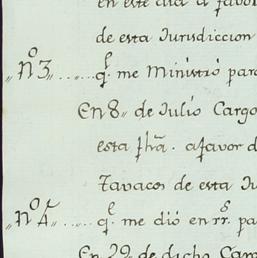 en este dia a favor
de esta Jurisdiccion
„nº3„..... q.^e me Ministró para
En 8„ de Julio Cargo
esta fha. afavor d
Tavacos de esta Ju
„nº4„.... q.^e me dió en rr.^s pa
En 29„ de dicho Car